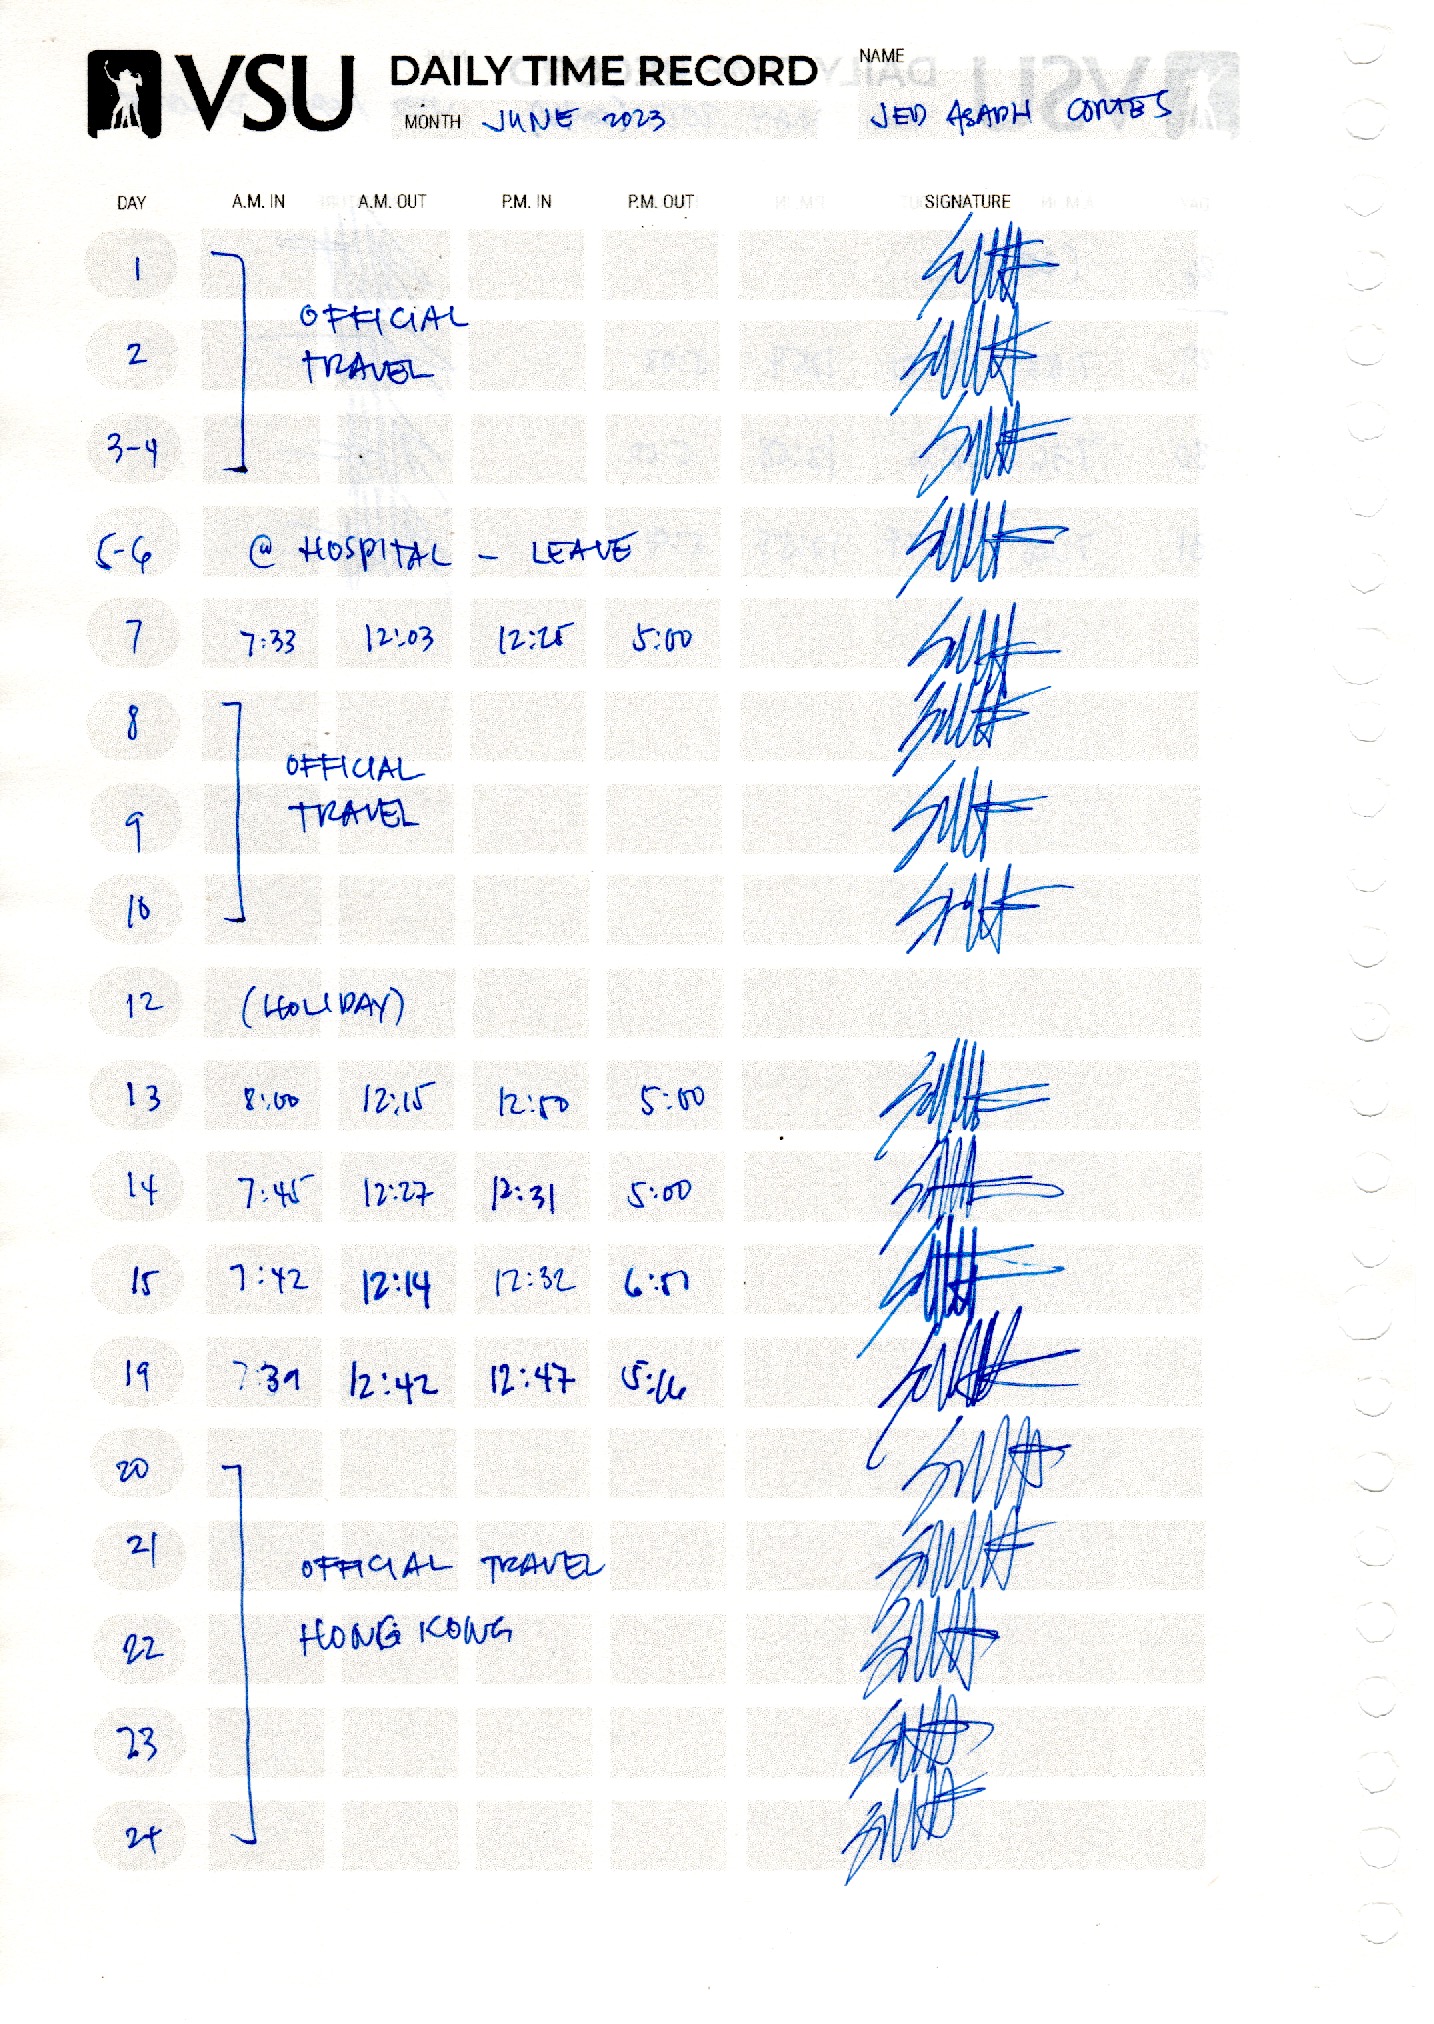 VSU DAILY TIME RECORD NAME
MONTH JUNE 2023 JED ASAPH CORTES
DAY A.M. IN A.M. OUT P.M. IN P.M. OUT SIGNATURE
1
OFFICIAL
2 TRAVEL
3-4
5-6 @ HOSPITAL - LEAVE
7 7:33 12:03 12:25 5:00
8
OFFICIAL
9 TRAVEL
10
12 (HOLIDAY)
13 8:00 12:15 12:50 5:00
14 7:45 12:27 12:31 5:00
15 7:42 12:14 12:32 6:51
19 7:39 12:42 12:47 5:16
20
21 OFFICIAL TRAVEL
22 HONG KONG
23
24